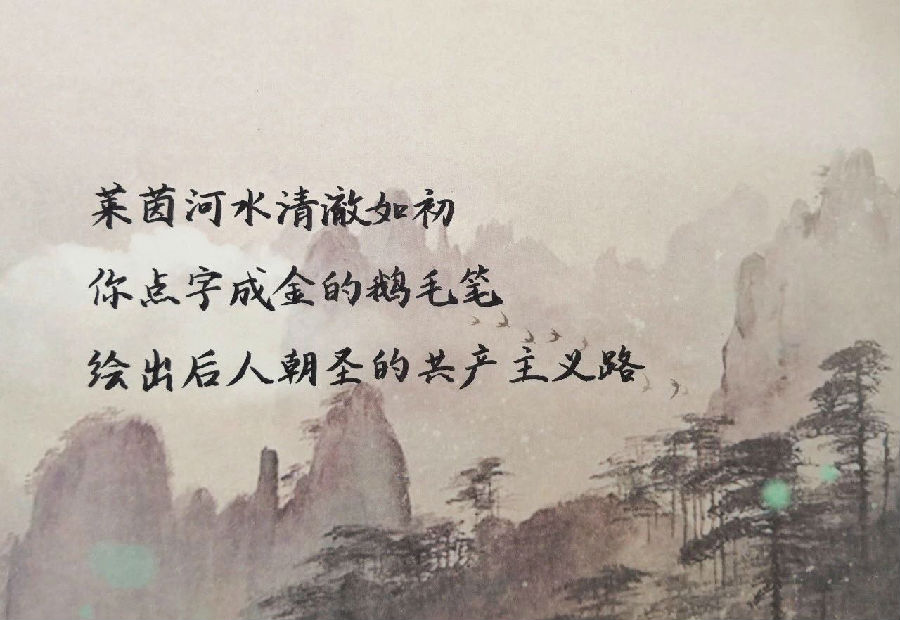 莱茵河水清澈如初
你点字成金的鹅毛笔
绘出后人朝圣的共产主义路